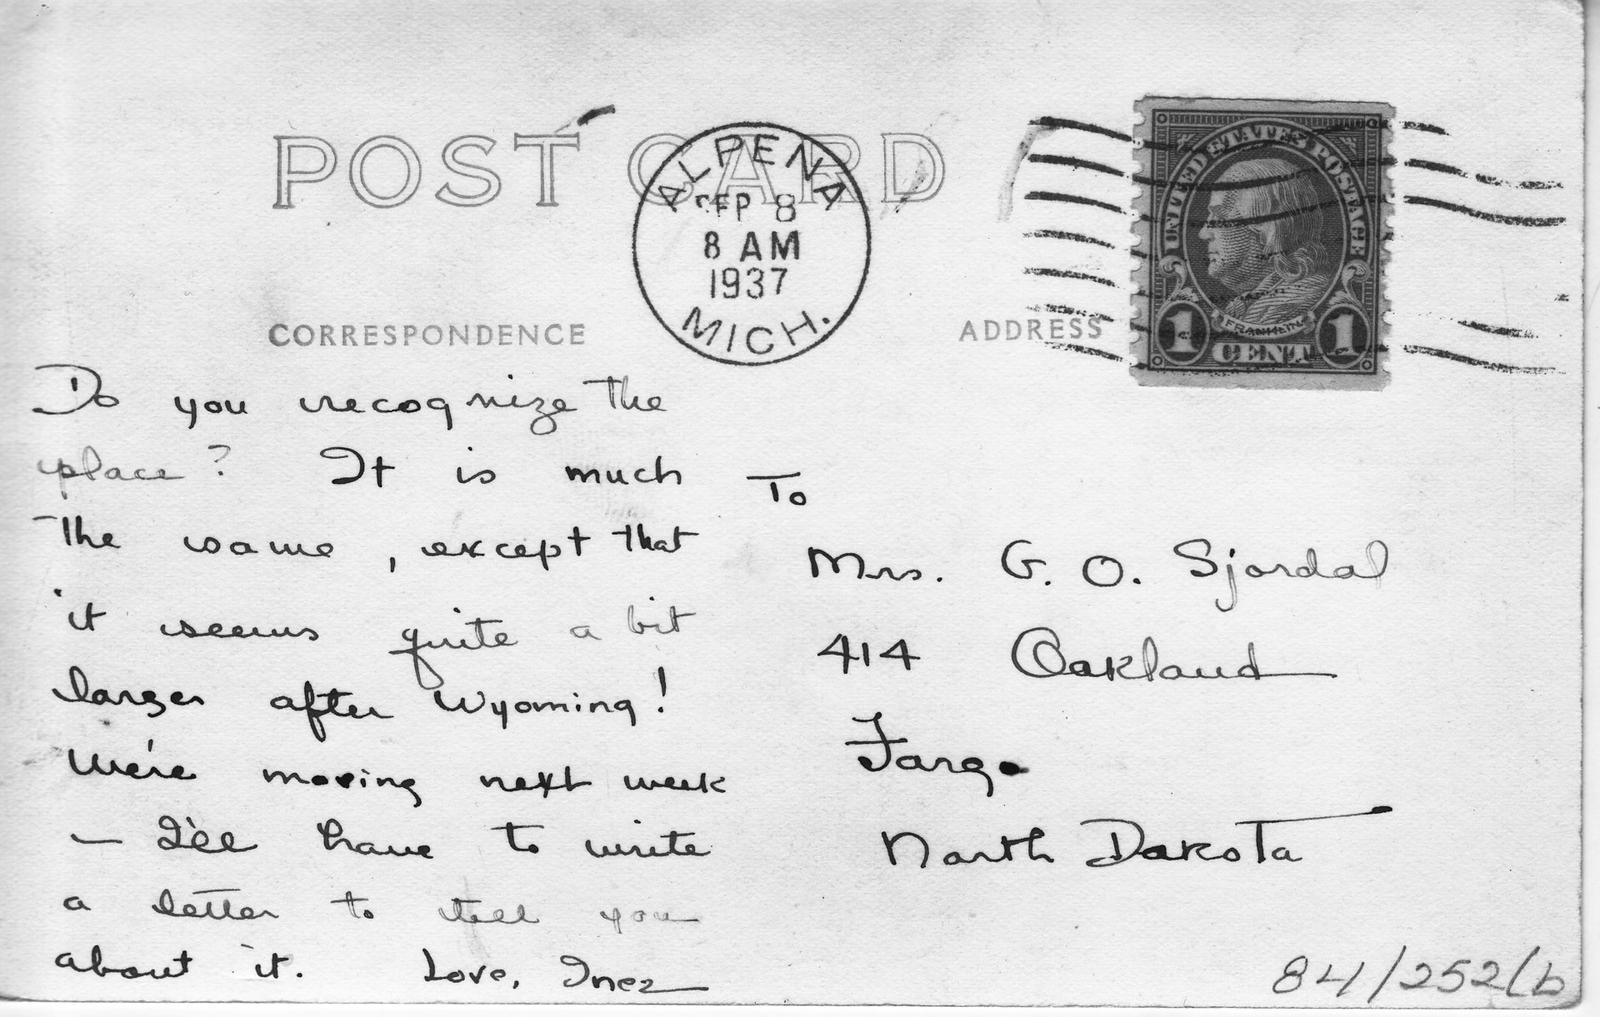 POST CARD
ALPENA
SEP 8
8 AM
1937
MICH.
UNITED STATES POSTAGE
FRANKLIN
1 CENT 1
CORRESPONDENCE
ADDRESS
Do you recognize the
place? It is much
the same, except that
it seems quite a bit
larger after Wyoming!
We're moving next week
— I'll have to write
a letter to tell you
about it. Love, Inez
To
Mrs. G. O. Sjordal
414 Oakland
Fargo
North Dakota
84/252(b